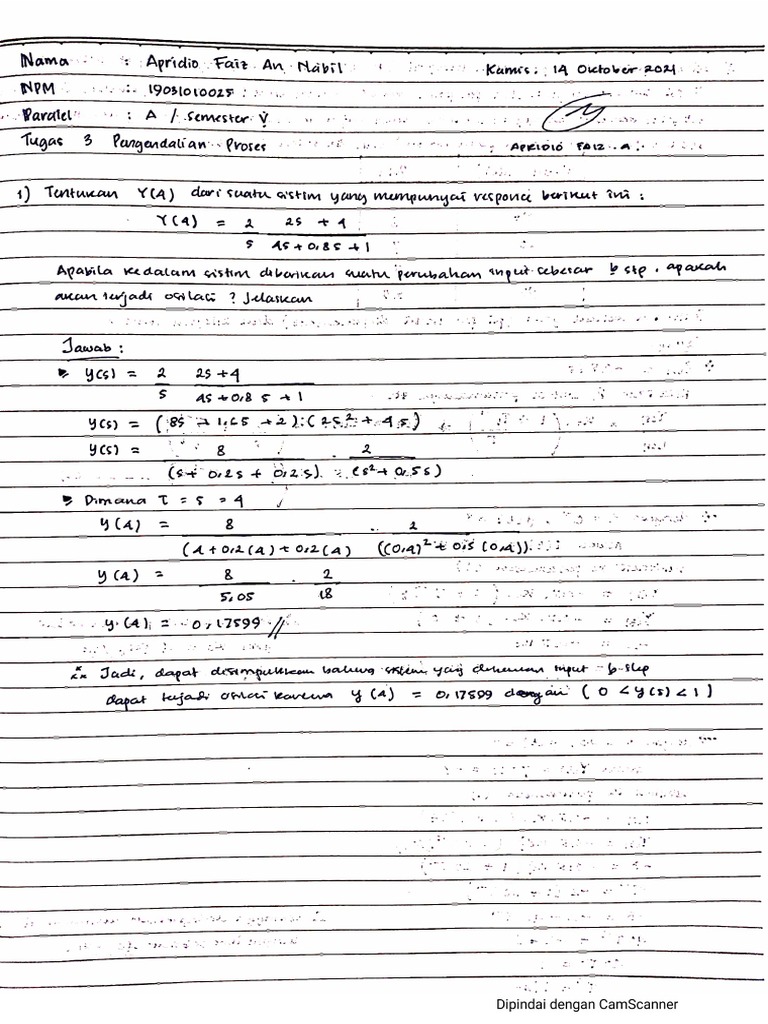 Nama : Apridio Faiz An Nabil Kamis, 14 Oktober 2021
NPM : 19031010025
Paralel : A / Semester V
Tugas 3 Pengendalian Proses APRIDIO FAIZ A.
1) Tentukan Y(4) dari suatu sistim yang mempunyai responce berikut ini :
Y(4) = 2 2s + 4
s 4s + 0,8s + 1
Apabila kedalam sistim diberikan suatu perubahan input sebesar 6 stp. apakah
akan terjadi osilasi ? Jelaskan
Jawab :
Y(s) = 2 2s + 4
s 4s + 0,8 s + 1
Y(s) = (8s + 1,6s + 2) : (2s² + 4s)
Y(s) = 8 . 2
(s + 0,2s + 0,2s) (s² + 0,5s)
Dimana τ = s = 4
y(4) = 8 . 2
(4 + 0,2(4) + 0,2(4) ((0,4)² + 0,5 (0,4))
y(4) = 8 . 2
5,05 18
y(4) = 0,17599 //
Jadi, dapat disimpulkan bahwa sistem yang dikenai input 6-step
dapat terjadi osilasi karena y(4) = 0,17599 dengan ( 0 < y(s) < 1 )
Dipindai dengan CamScanner